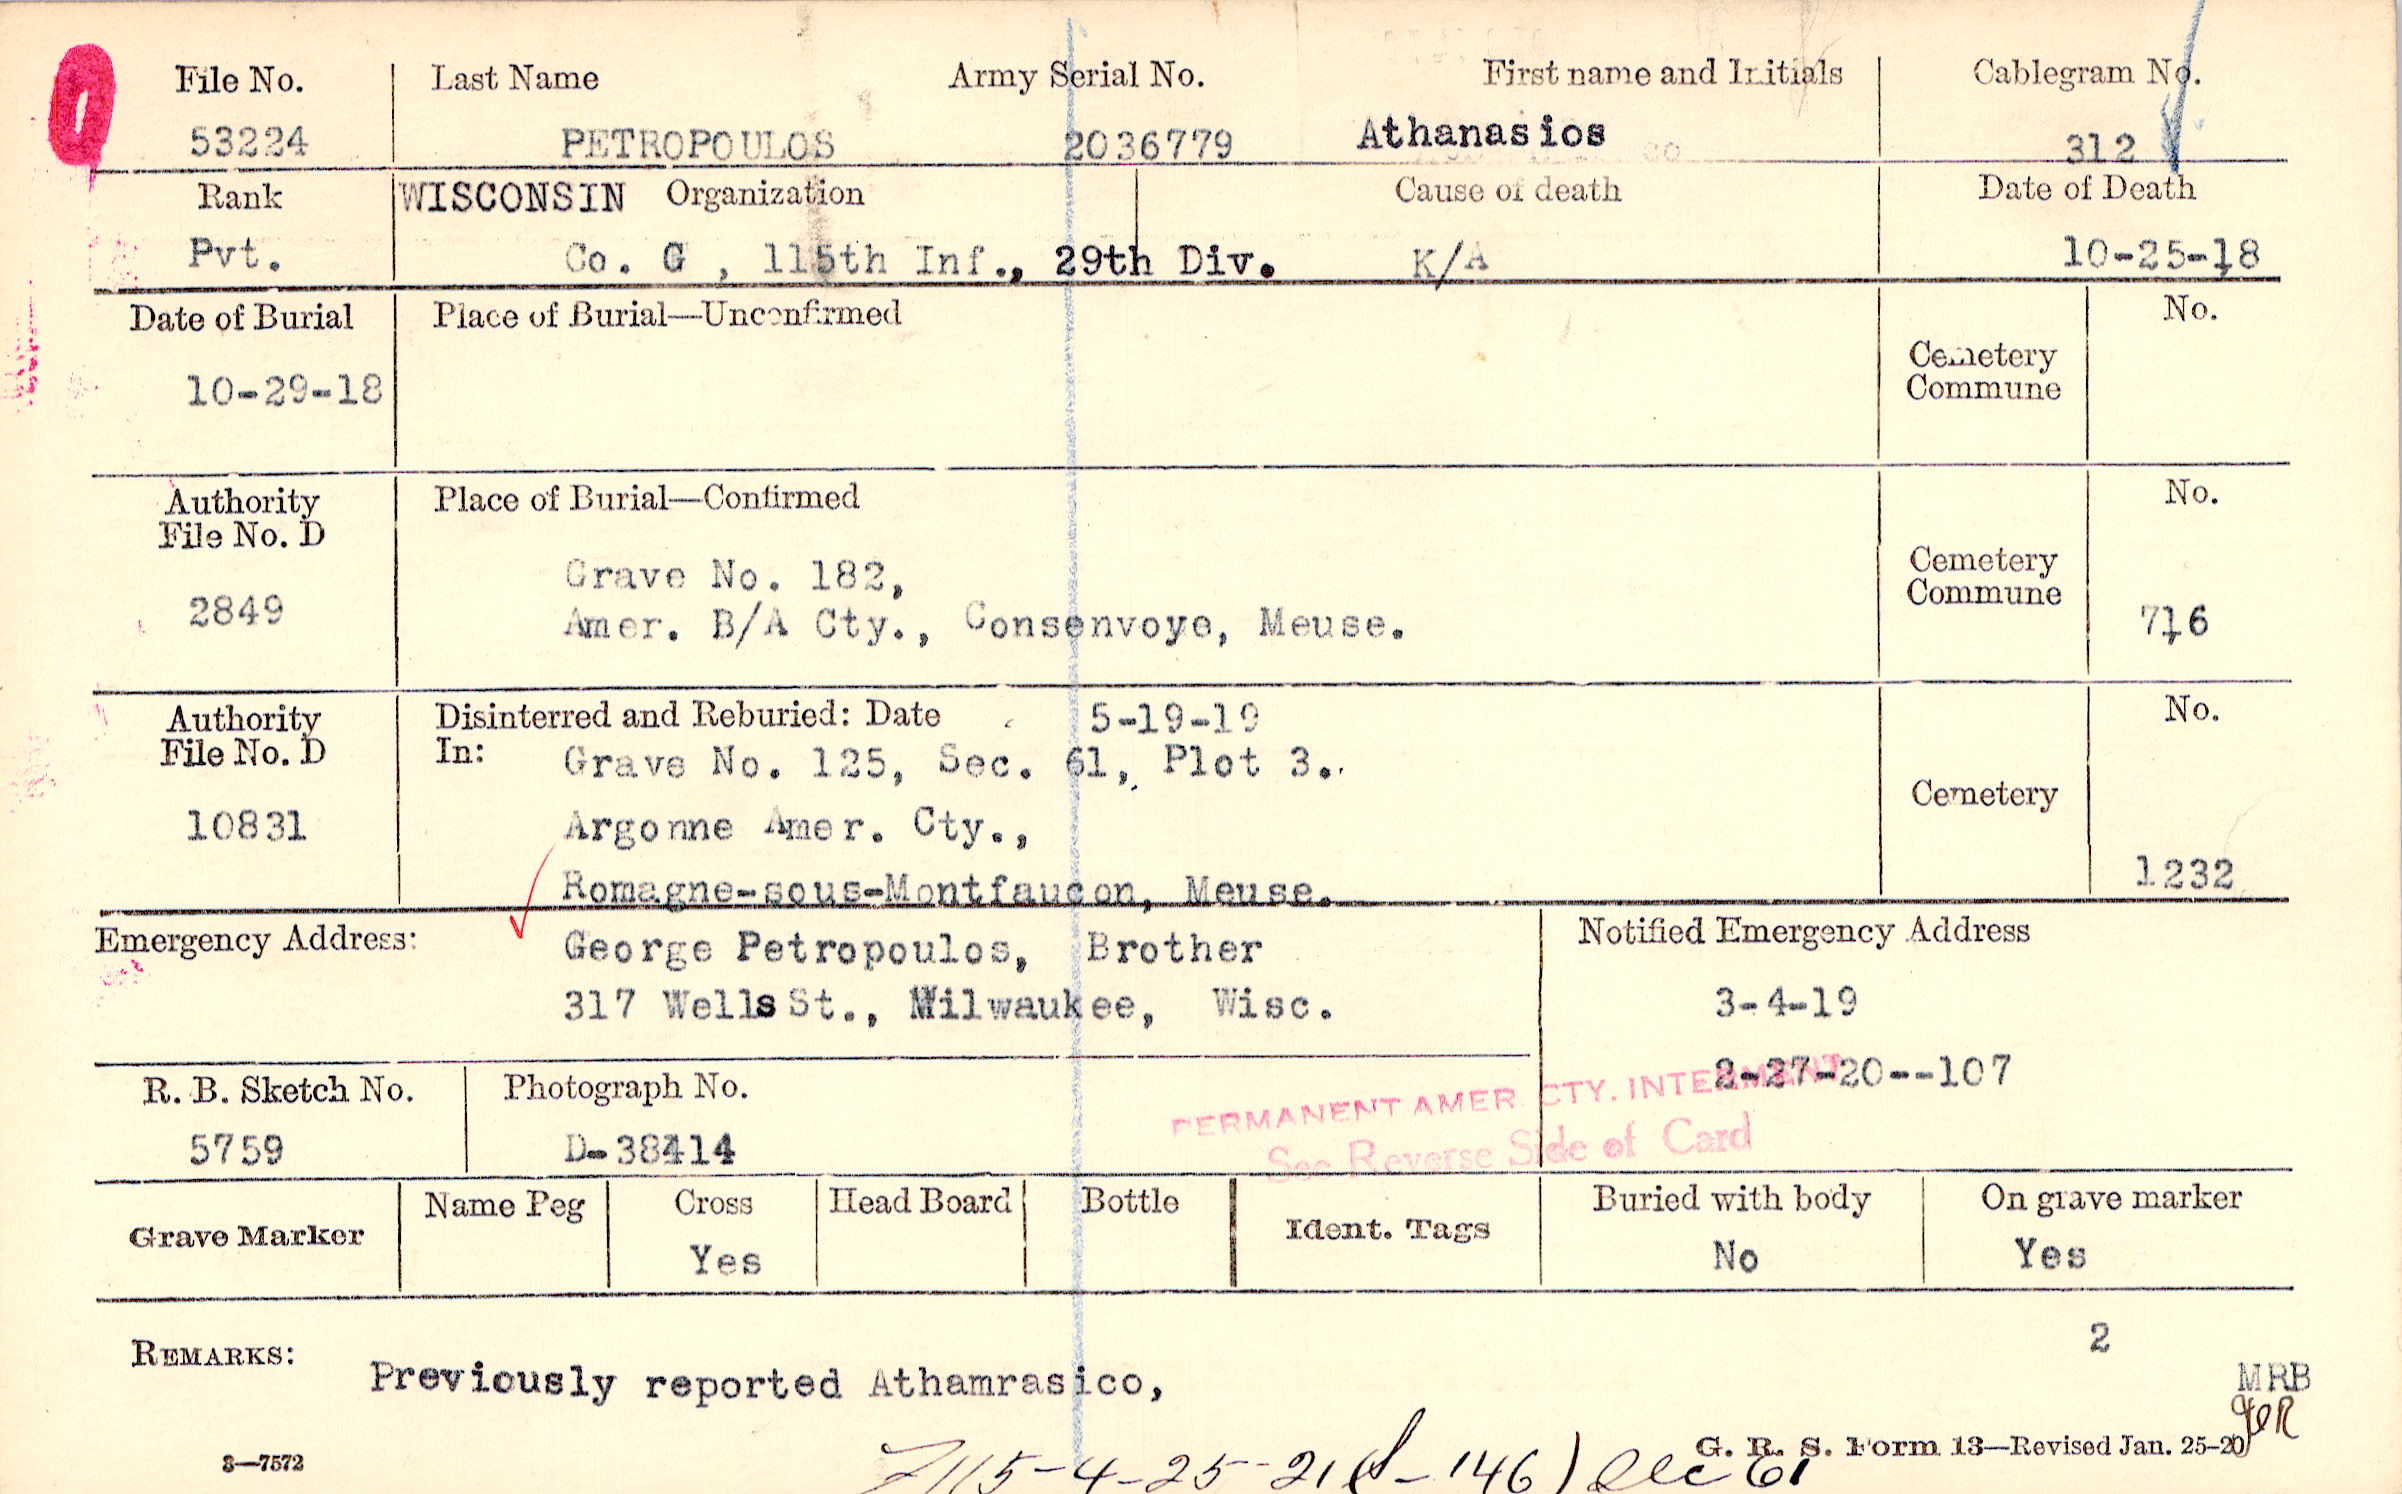 File No. Last Name Army Serial No. First name and Initials Cablegram No.
53224 PETROPOULOS 2036779 Athanasios 312
Rank WISCONSIN Organization Cause of death Date of Death
Pvt. Co. G , 115th Inf., 29th Div. K/A 10-25-18
Date of Burial Place of Burial—Unconfirmed No.
10-29-18 Cemetery
Commune
Authority Place of Burial—Confirmed No.
File No. D
Grave No. 182, Cemetery
2849 Amer. B/A Cty., Consenvoye, Meuse. Commune 716
Authority Disinterred and Reburied: Date 5-19-19 No.
File No. D In: Grave No. 125, Sec. 61, Plot 3.
10831 Argonne Amer. Cty., Cemetery
Romagne-sous-Montfaucon, Meuse. 1232
Emergency Address: George Petropoulos, Brother Notified Emergency Address
317 Wells St., Milwaukee, Wisc. 3-4-19
2-27-20--107
R. B. Sketch No. Photograph No. PERMANENT AMER CTY. INTERMENT
5759 D-38414 See Reverse Side of Card
Grave Marker Name Peg Cross Head Board Bottle Ident. Tags Buried with body On grave marker
Yes No Yes
2
REMARKS: Previously reported Athamrasico, MRB
3—7572 G. R. S. Form 13—Revised Jan. 25-20